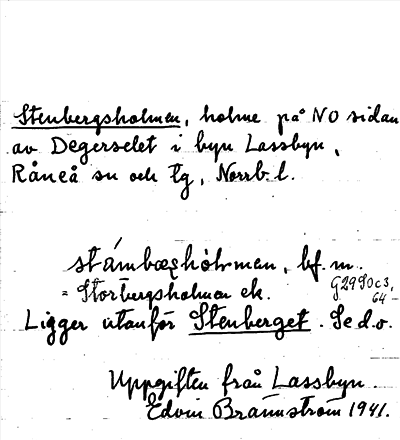 Stenbergsholmen, holme på NO sidan
av Degerselet i byn Lassbyn,
Råneå sn och tg, Norrb. l.
stámbærshòlmen, bf. m.
= Storbergsholmen ek.
G2950c3,
64
Ligger utanför Stenberget. Se d.o.
Uppgiften från Lassbyn.
Edvin Brännström 1941.